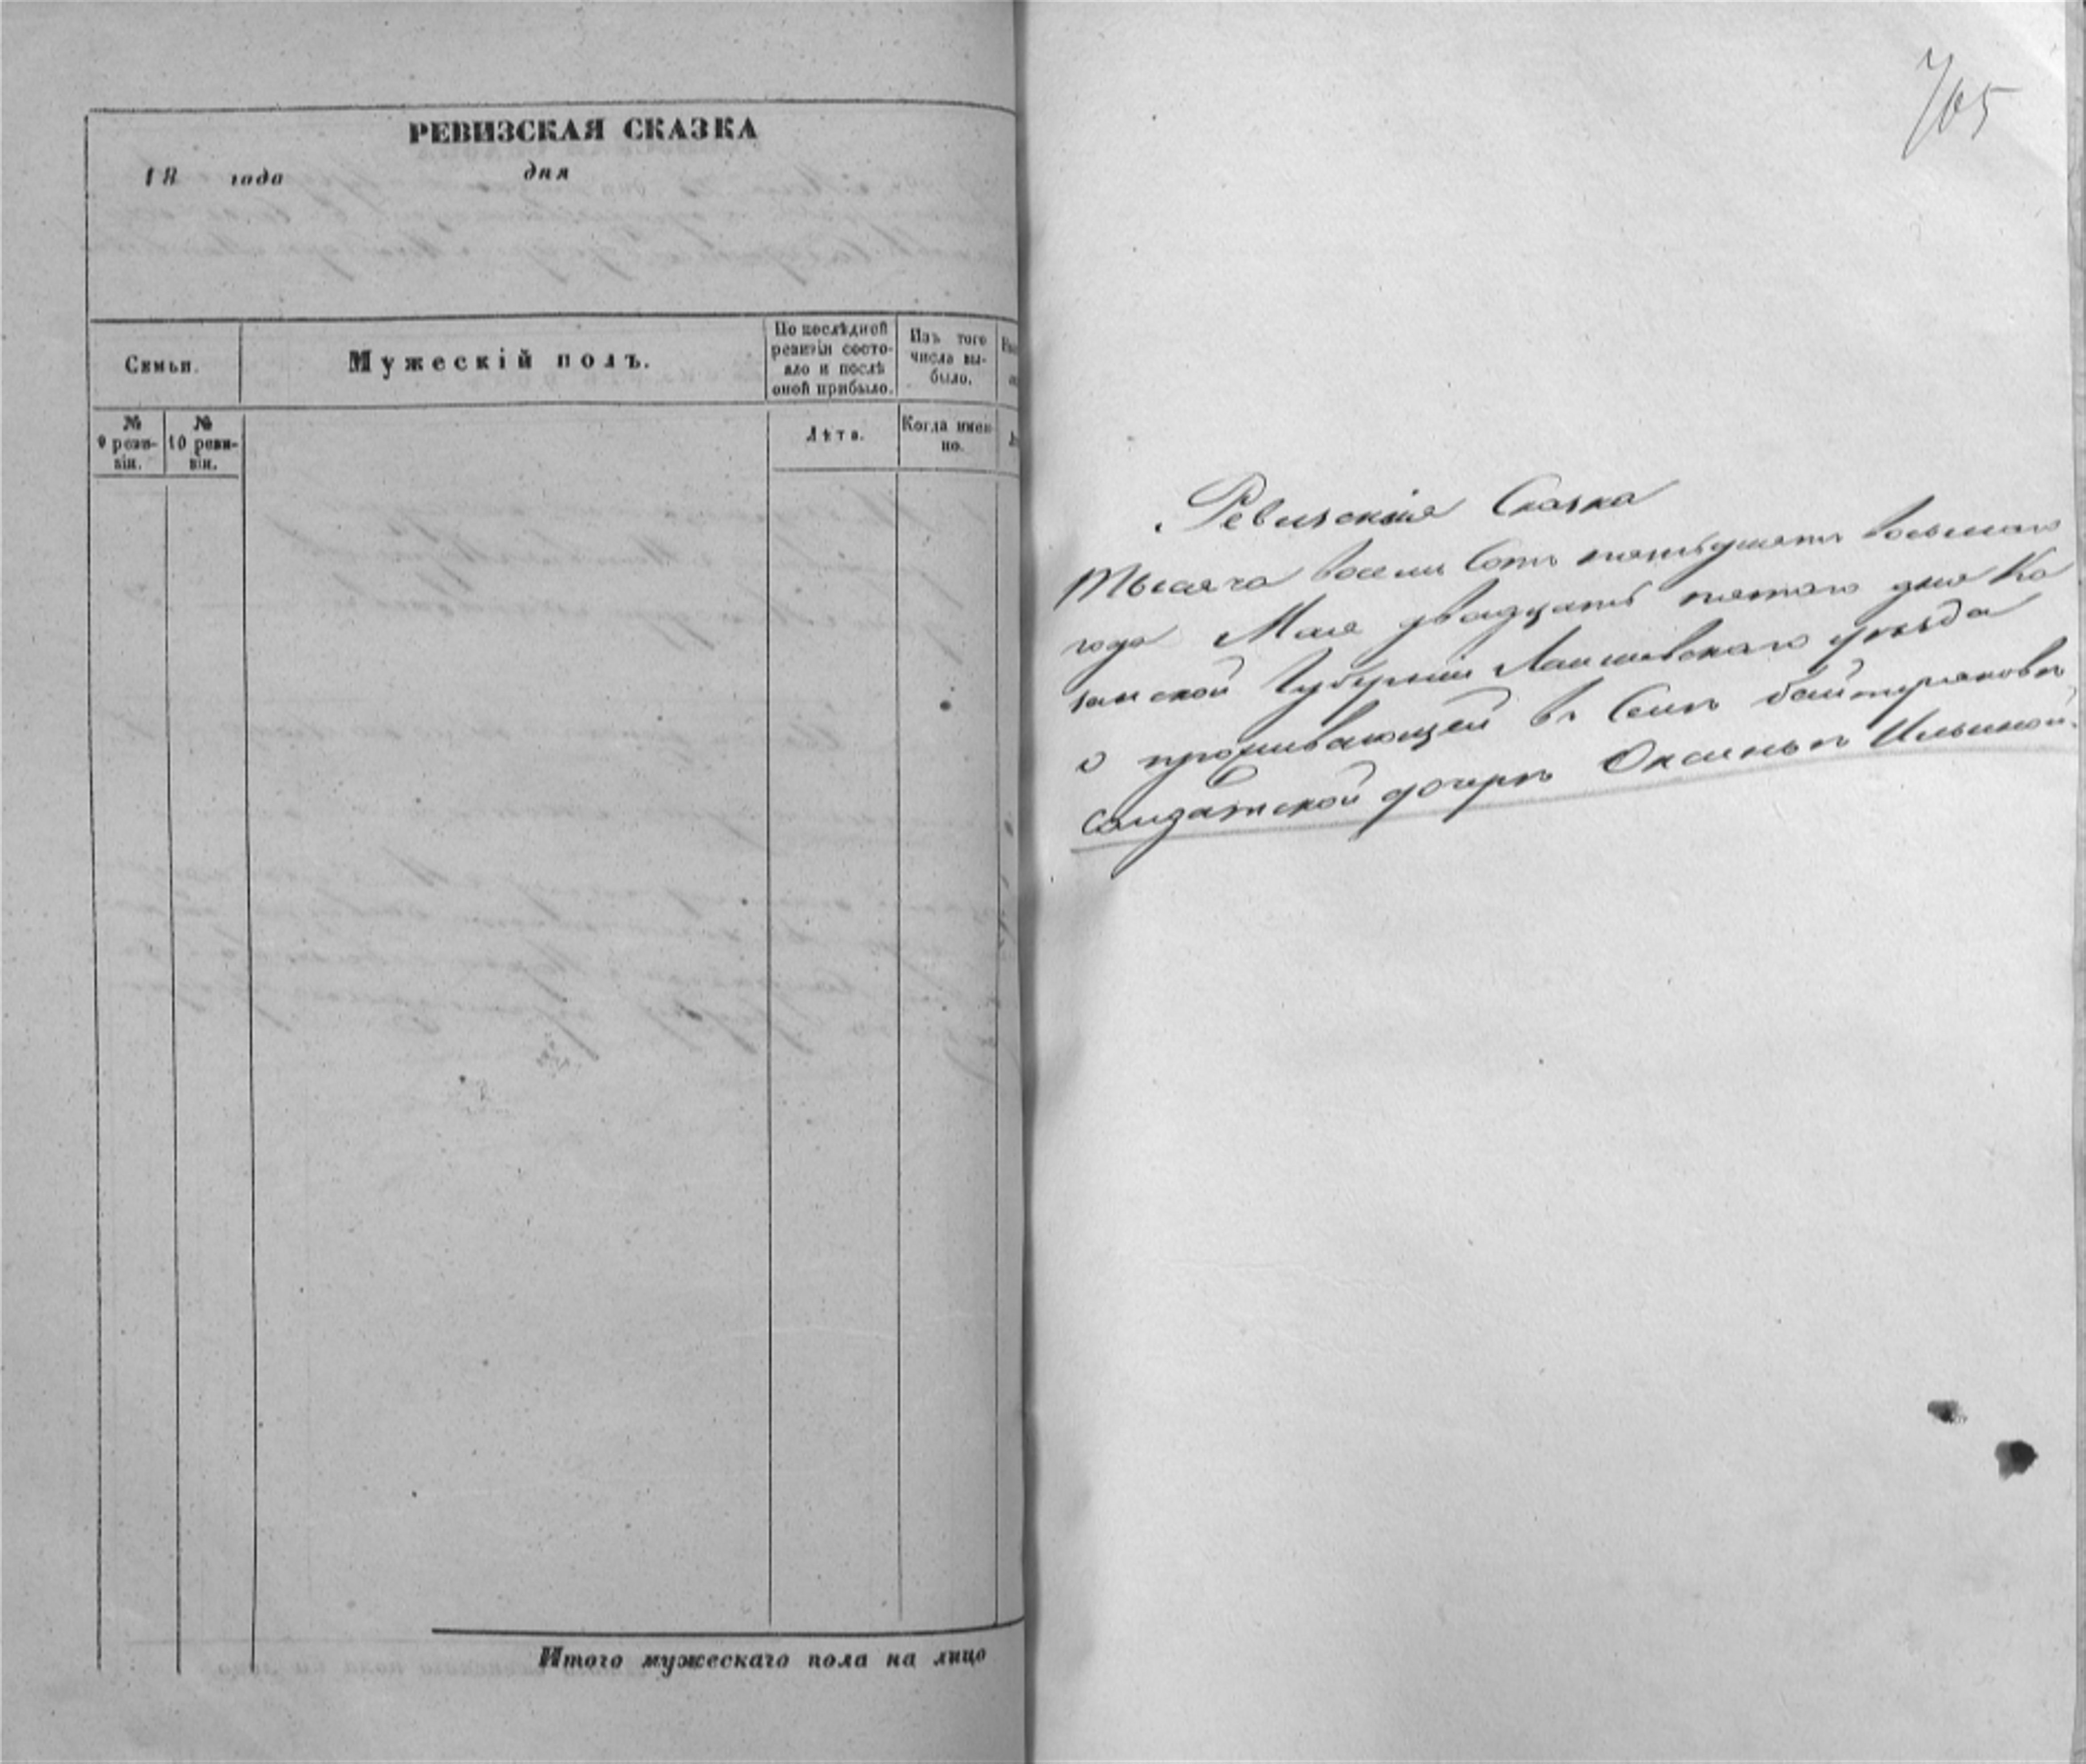 РЕВИЗСКАЯ СКАЗКА
18 года дня
Семьи.
Мужескій полъ.
По послѣдней
ревизіи состо-
яло и послѣ
оной прибыло.
Изъ того
числа вы-
было.
№
9 реви-
зіи.
№
10 реви-
зіи.
Лѣта.
Когда имен-
но.
Итого мужескаго пола на лицо
705
Ревизская Сказка
Тысяча восемь Сотъ пятьдесятъ восьмаго
года Мая двадцать пятаго дня Ка
занской Губерніи Лаишевскаго уѣзда
о проживающей въ Селѣ
Солдатской дочерѣ Оксиньѣ Ильиной.